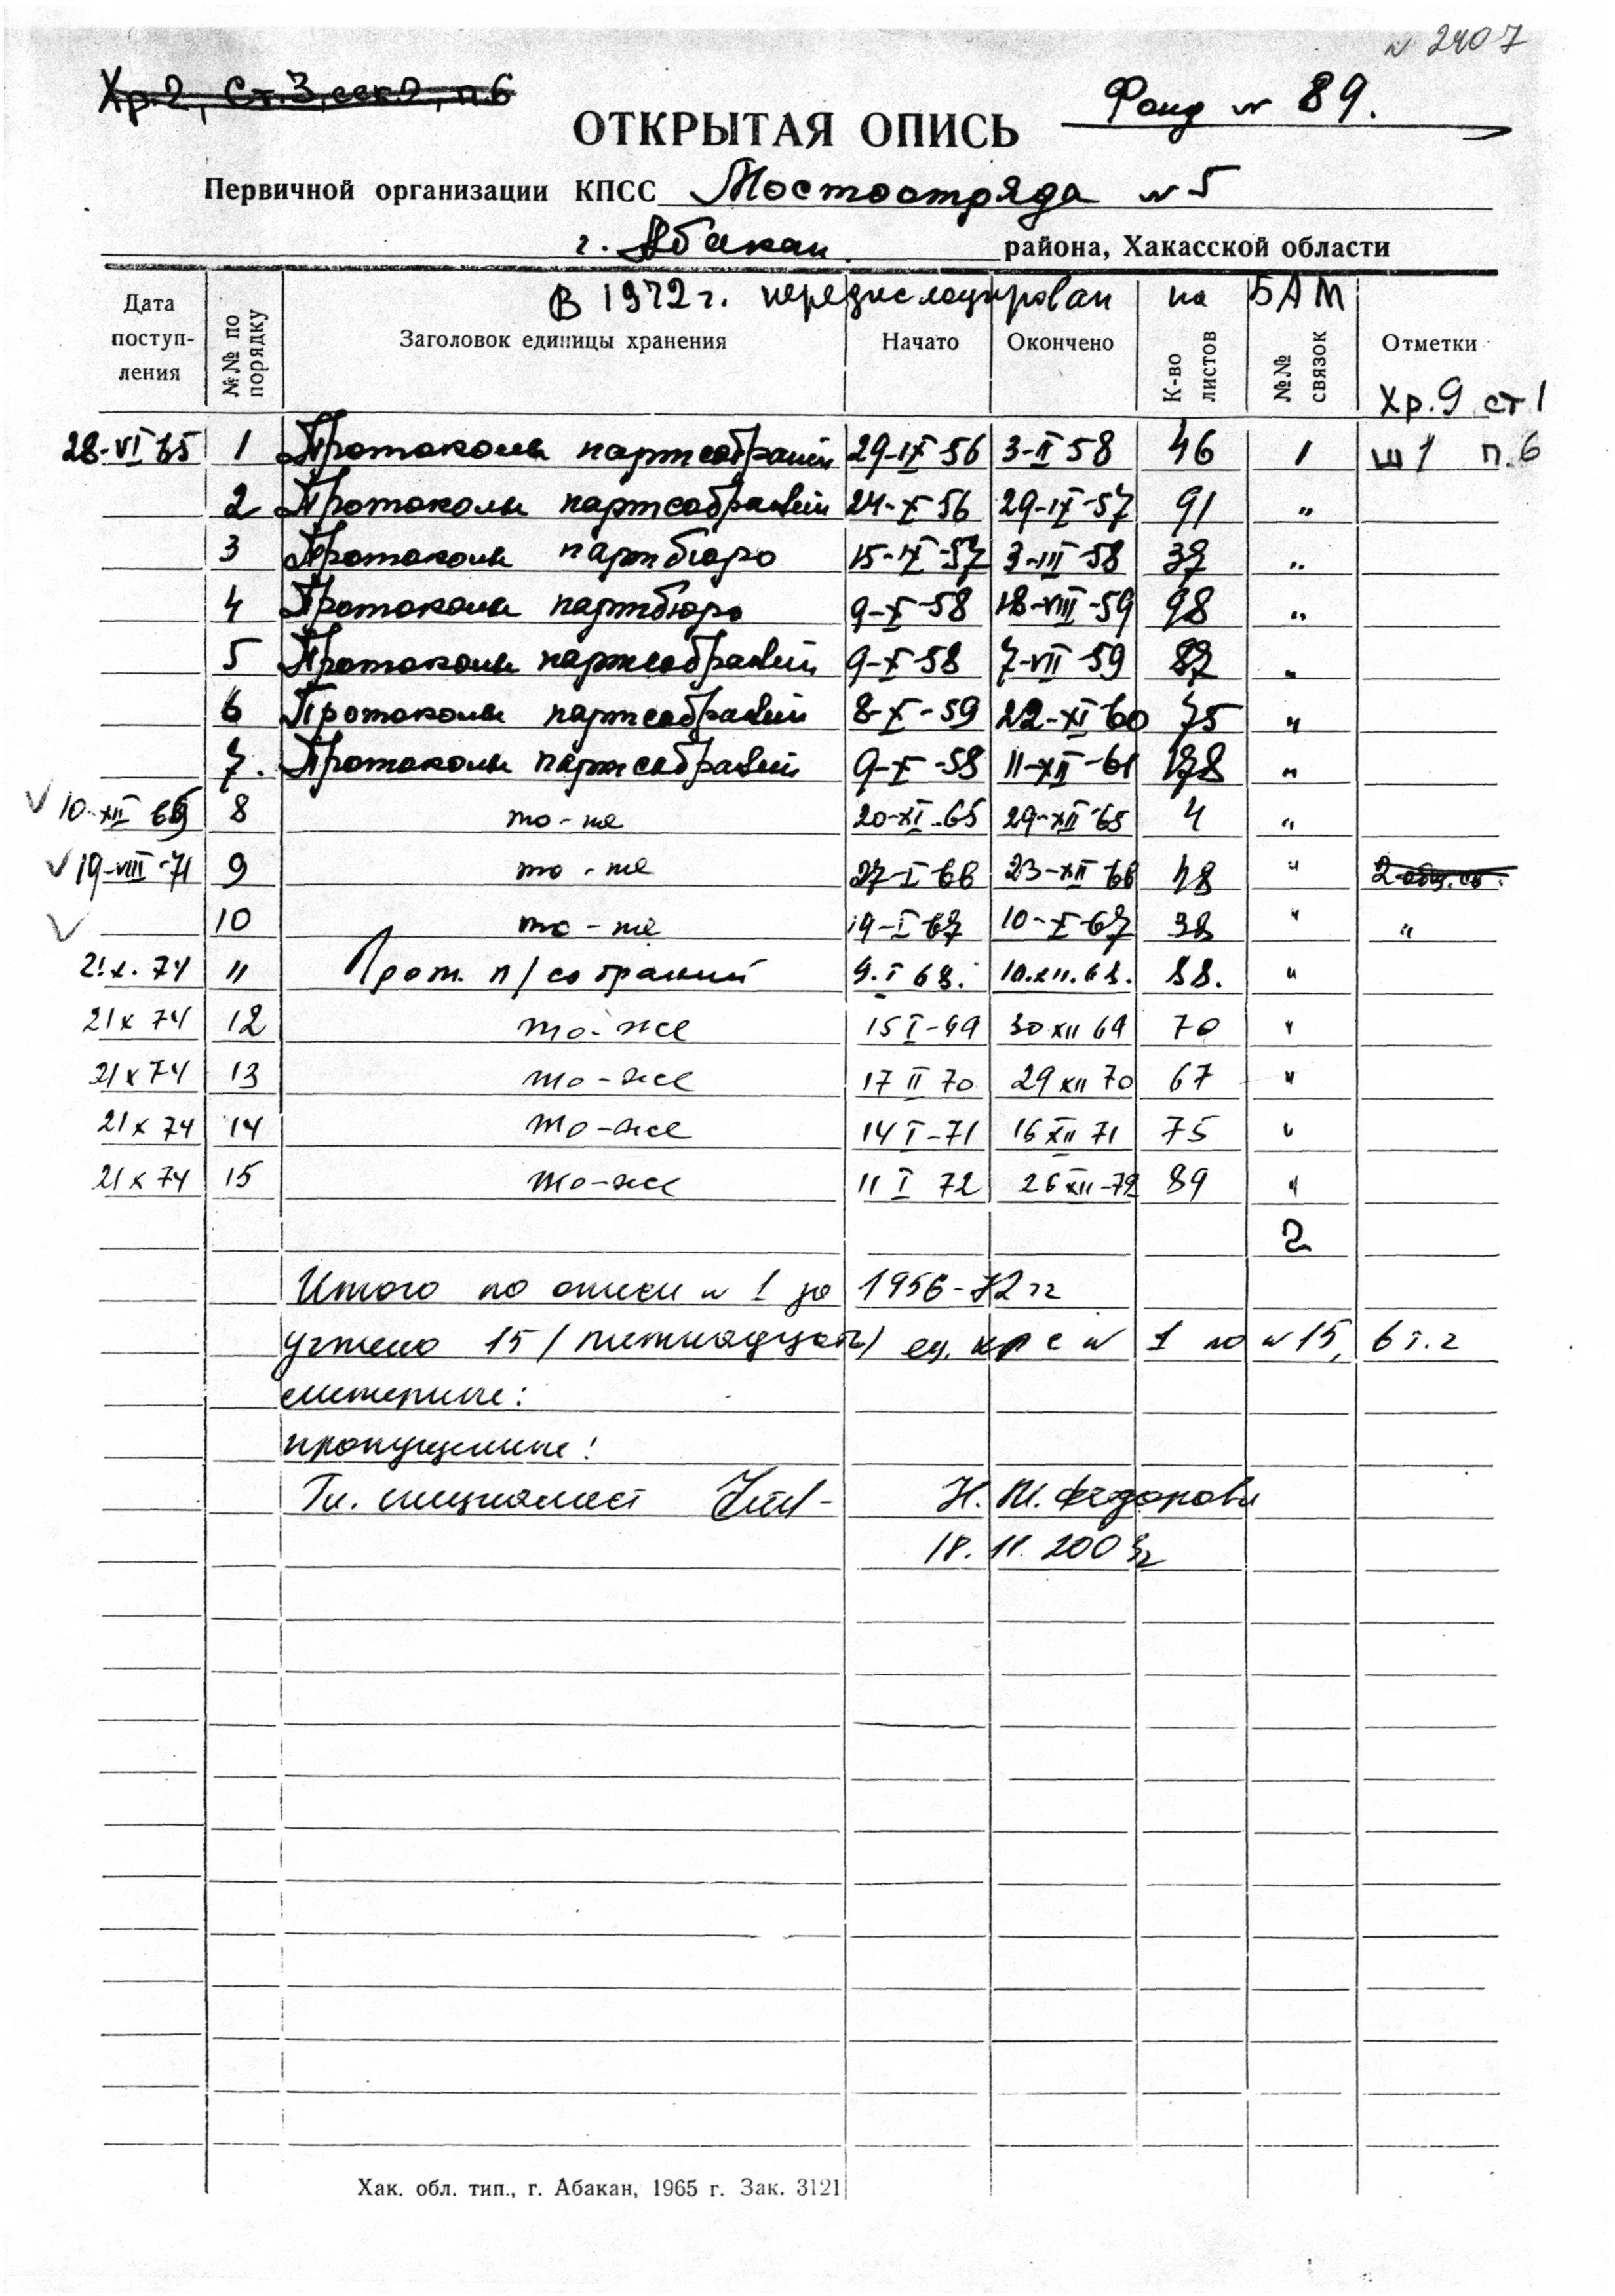 N 2407
Хр.2, Ст.3, сек.2, п.6
Фонд N 89.
ОТКРЫТАЯ ОПИСЬ
Первичной организации КПСС Мостоотряда N 5
г. Абакан района, Хакасской области
В 1972 г. передислоцирован на БАМ
Дата поступ-ления №№ по порядку Заголовок единицы хранения Начато Окончено К-во листов №№ связок Отметки
Хр.9 ст 1
28-VI 65 1 Протоколы партсобраний 29-IX-56 3-II 58 46 1 ш 1 п.6
2 Протоколы партсобраний 24-X-56 29-IX-57 91 "
3 Протоколы партбюро 15-IX-57 3-III-58 37 "
4 Протоколы партбюро 9-X-58 18-VIII-59 98 "
5 Протоколы партсобраний 9-X-58 7-VII-59 87 "
6 Протоколы партсобраний 8-X-59 22-XI 60 75 "
7. Протоколы партсобраний 9-X-58 11-XII-61 178 "
10-XII 65 8 то-же 20-XI-65 29-XII-65 4 "
19-VIII-71 9 то-же 27-I-66 23-XII 66 48 "
10 то-же 19-I 67 10-X-67 38 " "
21.X.74 11 Прот. п/собраний 9.I 68. 10.XII.68. 88. "
21 X 74 12 то-же 15 I-69 30 XII 69 70 "
21 X 74 13 то-же 17 II 70 29 XII 70 67 "
21 X 74 14 то-же 14 I-71 16 XII 71 75 "
21 X 74 15 то-же 11 I 72 26 XII-72 89 "
2
Итого по описи N 1 за 1956-72 гг
учтено 15 (пятнадцать) ед. хр с N 1 по N 15, в т.ч
литерные:
пропущенные:
Гл. специалист Н. М. Федорова
18.11.2003г
Хак. обл. тип., г. Абакан, 1965 г. Зак. 3121